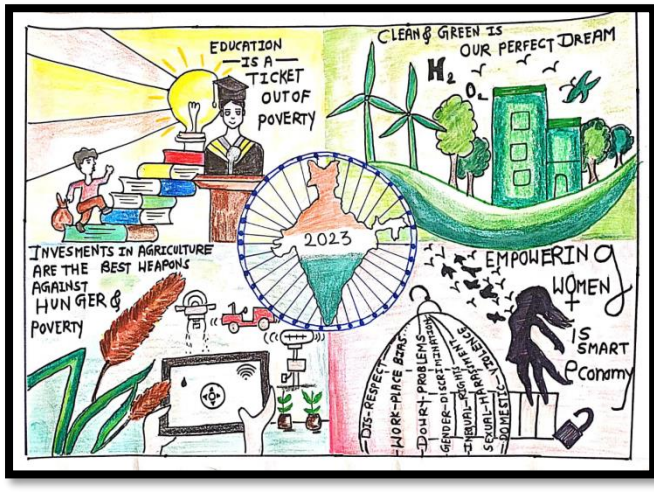 EDUCATION
— IS A —
TICKET
OUT OF
POVERTY
CLEAN & GREEN IS
OUR PERFECT DREAM
H2
O2
2023
INVESMENTS IN AGRICULTURE
ARE THE BEST WEAPONS
AGAINST
HUNGER &
POVERTY
EMPOWERING
WOMEN
IS
SMART
Economy
DIS-RESPECT
WORK-PLACE BIAS
DOWRY PROBLEMS
GENDER-DISCRIMINATION
SEXUAL-HARRISMENT
DOMESTIC VIOLENCE